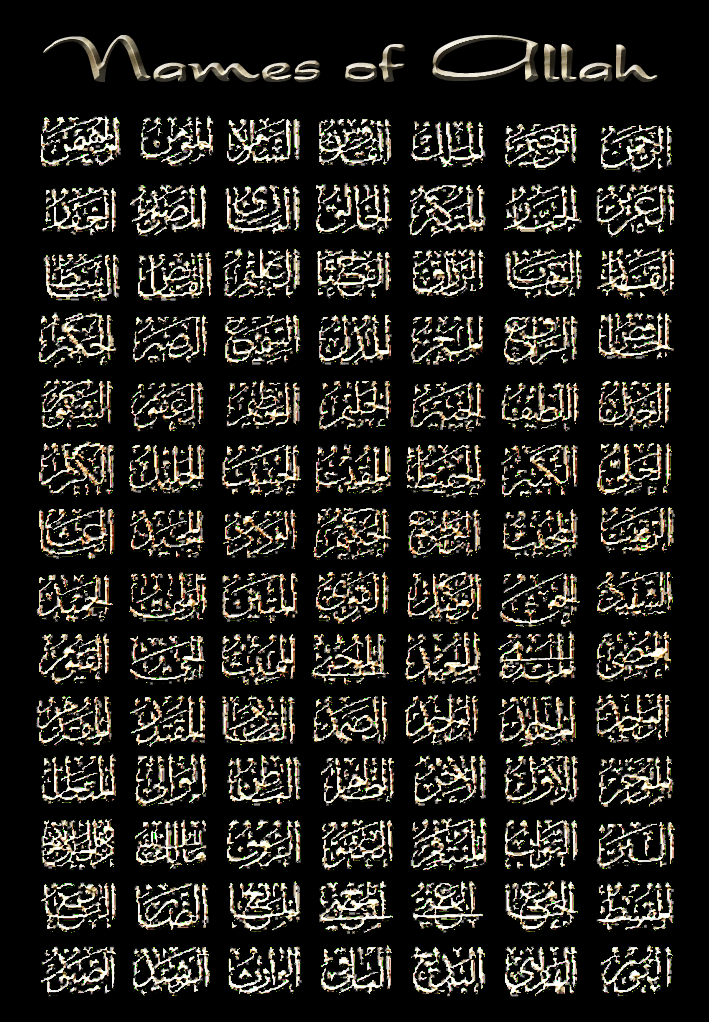 Names of Allah
الرحمن الرحيم الملك القدوس السلام المؤمن المهيمن
العزيز الجبار المتكبر الخالق البارئ المصور
القهار الوهاب الرزاق الفتاح العليم القابض الباسط
الخافض الرافع المعز المذل السميع البصير الحكم
العدل اللطيف الخبير الحليم العظيم الغفور الشكور
العلي الكبير الحفيظ المقيت الحسيب الجليل الكريم
الرقيب المجيب الواسع الحكيم الودود المجيد الباعث
الشهيد الحق الوكيل القوي المتين الولي الحميد
المحصي المبدئ المعيد المحيي المميت الحي القيوم
الواجد الماجد الواحد الصمد القادر المقتدر المقدم
المؤخر الأول الآخر الظاهر الباطن الوالي المتعالي
البر التواب المنتقم العفو الرؤوف مالك الملك ذو الجلال والإكرام
المقسط الجامع الغني المغني المانع الضار النافع
النور الهادي البديع الباقي الوارث الرشيد الصبور